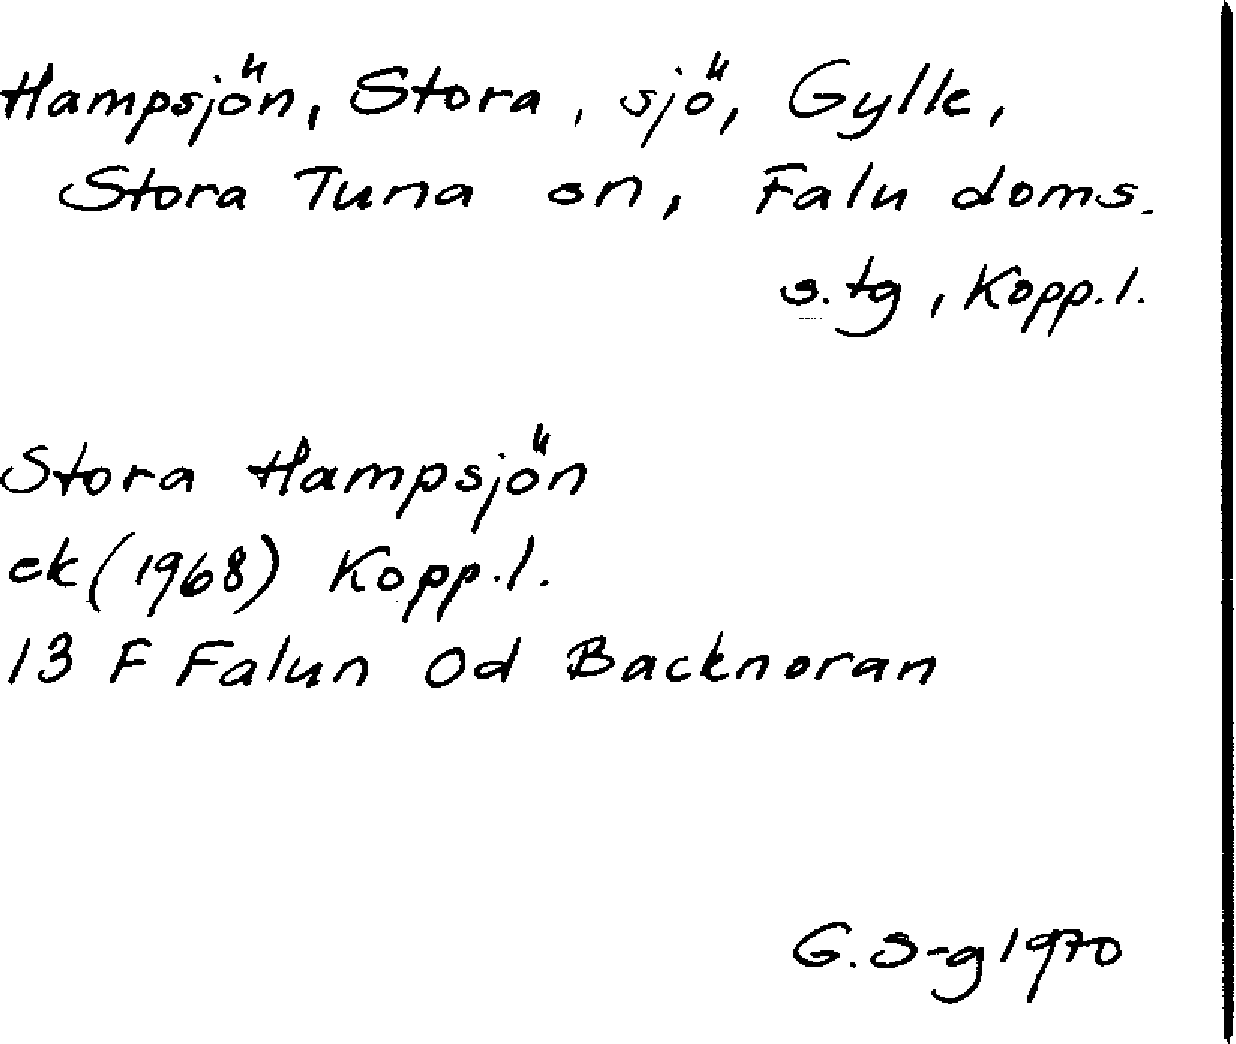 Hampsjön, Stora, sjö, Gylle,
Stora Tuna sn, Falu doms.
s. tg, Kopp. l.
Stora Hampsjön
ek (1968) Kopp. l.
13 F Falun 0d Backnoran
G. S-g 1970